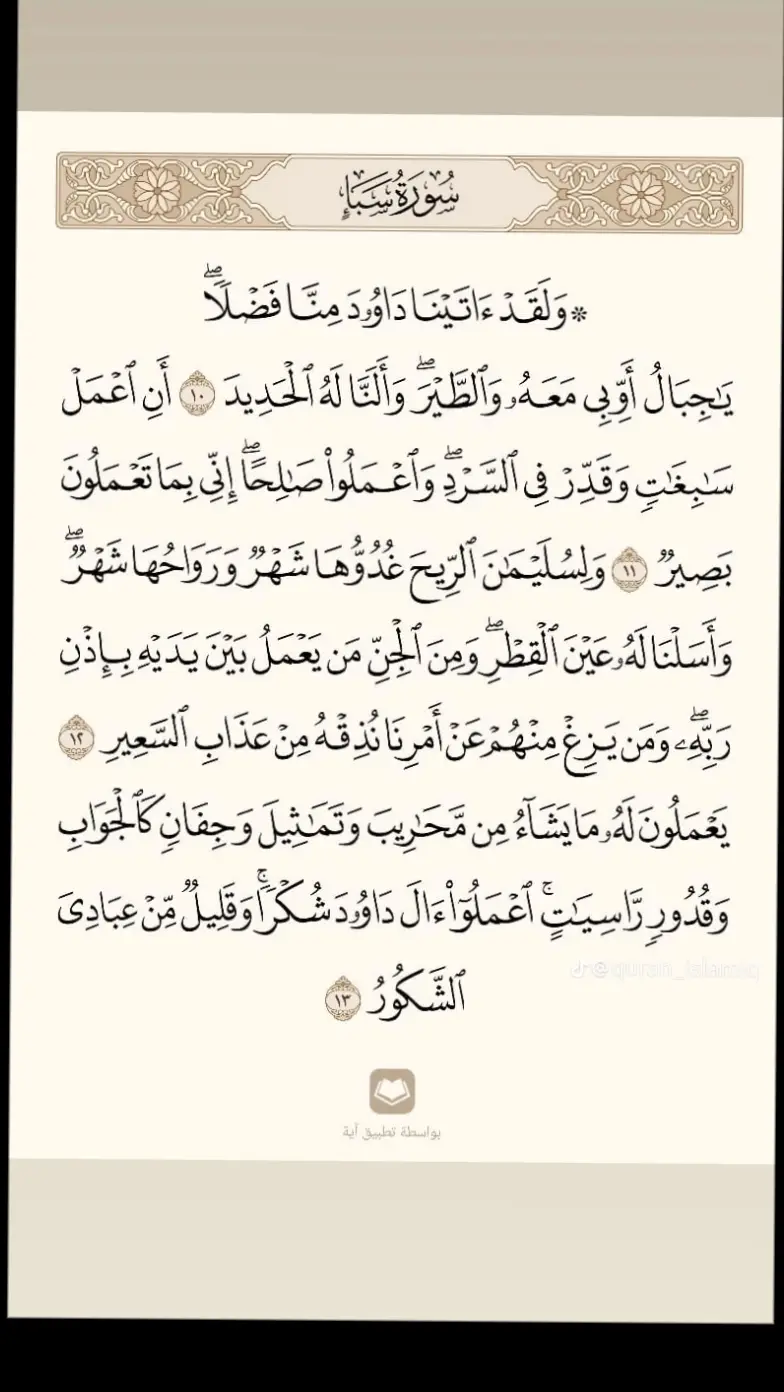 سُورَةُ سَبَإٍ
۞ وَلَقَدْ ءَاتَيْنَا دَاوُۥدَ مِنَّا فَضْلًاۖ
يَٰجِبَالُ أَوِّبِى مَعَهُۥ وَٱلطَّيْرَۖ وَأَلَنَّا لَهُ ٱلْحَدِيدَ ١٠ أَنِ ٱعْمَلْ
سَٰبِغَٰتٍ وَقَدِّرْ فِى ٱلسَّرْدِۖ وَٱعْمَلُوا۟ صَٰلِحًاۖ إِنِّى بِمَا تَعْمَلُونَ
بَصِيرٌ ١١ وَلِسُلَيْمَٰنَ ٱلرِّيحَ غُدُوُّهَا شَهْرٌ وَرَوَاحُهَا شَهْرٌۖ
وَأَسَلْنَا لَهُۥ عَيْنَ ٱلْقِطْرِۖ وَمِنَ ٱلْجِنِّ مَن يَعْمَلُ بَيْنَ يَدَيْهِ بِإِذْنِ
رَبِّهِۦۖ وَمَن يَزِغْ مِنْهُمْ عَنْ أَمْرِنَا نُذِقْهُ مِنْ عَذَابِ ٱلسَّعِيرِ ١٢
يَعْمَلُونَ لَهُۥ مَا يَشَآءُ مِن مَّحَٰرِيبَ وَتَمَٰثِيلَ وَجِفَانٍ كَٱلْجَوَابِ
وَقُدُورٍ رَّاسِيَٰتٍۚ ٱعْمَلُوٓا۟ ءَالَ دَاوُۥدَ شُكْرًاۚ وَقَلِيلٌ مِّنْ عِبَادِىَ
ٱلشَّكُورُ ١٣
@quran_islamiq
بواسطة تطبيق آية